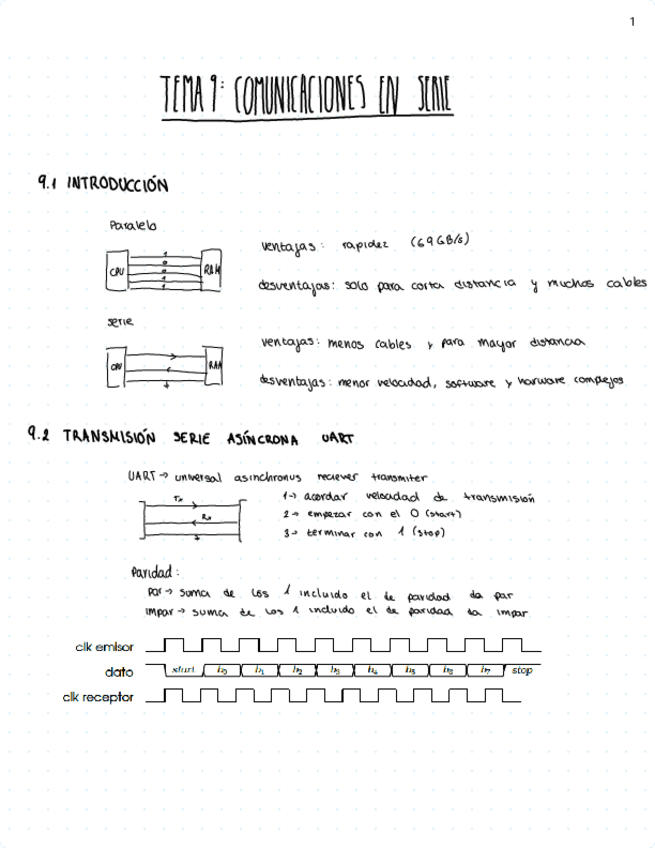 1
TEMA 9: COMUNICACIONES EN SERIE
9.1 INTRODUCCIÓN
Paralelo
ventajas: rapidez (69GB/s)
CPU 1 0 0 1 1 RAM
desventajas: solo para corta distancia y muchos cables
serie
ventajas: menos cables y para mayor distancia
CPU RAM
desventajas: menor velocidad, software y harware complejos
9.2 TRANSMISIÓN SERIE ASÍNCRONA UART
UART → universal asinchronus reciever transmiter
Tx
1→ acordar velocidad de transmisión
Rx
2→ empezar con el 0 (start)
3→ terminar con 1 (stop)
Paridad:
Par → suma de los 1 incluido el de paridad da par
Impar → suma de los 1 incluido el de paridad da impar
clk emisor
dato start b0 b1 b2 b3 b4 b5 b6 b7 stop
clk receptor